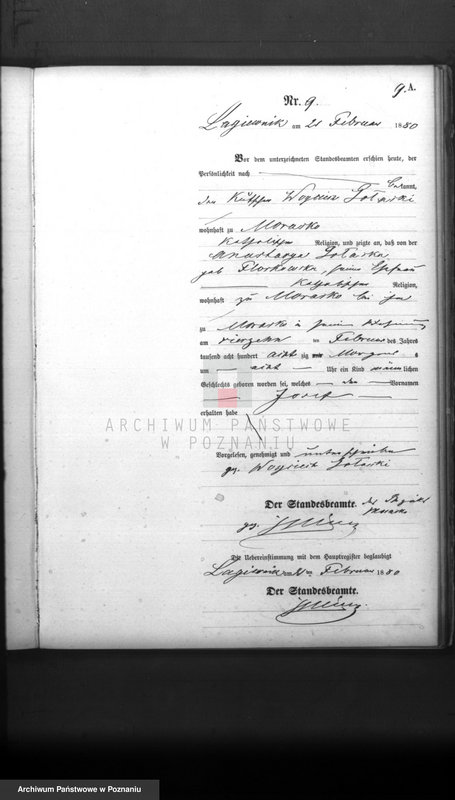 9. A.
Nr. 9.
Lagiewnik am 21 Februar 1880
Vor dem unterzeichneten Standesbeamten erschien heute, der
Persönlichkeit nach
bekannt,
den Kutscher Woyciech
wohnhaft zu Morasko
katholischer Religion, und zeigte an, daß von der
geb. seiner Ehefrau
katholischer Religion,
wohnhaft zu Morasko bei ihm
zu Morasko in seiner Wohnung
am vierzehn ten Februar des Jahres
tausend acht hundert acht zig Morgens
um acht Uhr ein Kind männlichen
Geschlechts geboren worden sei, welches den Vornamen
Josef
erhalten habe
ARCHIWUM PAŃSTWOWE
W POZNANIU
Vorgelesen, genehmigt und unterschrieben
gez. Woyciech
Der Standesbeamte.
gez.
Die Uebereinstimmung mit dem Hauptregister beglaubigt
Lagiewnik am 21 ten Februar 1880
Der Standesbeamte.
Archiwum Państwowe w Poznaniu